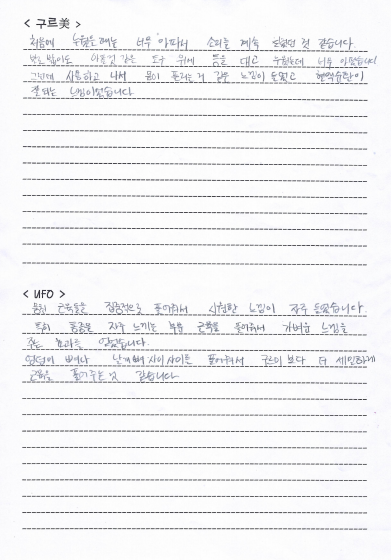 < 구르美 >
처음에 누웠을 때는 너무 아파서 소리를 계속 냈던 것 같습니다.
등을 대고 누웠는데 너무 아팠습니다
그런데 사용하고 나서 몸이 풀리는 거 같은 느낌이 들었고 혈액순환이
잘 되는 느낌이었습니다.
< UFO >
몸의 근육들을 집중적으로 풀어줘서 시원한 느낌이 자주 들었습니다.
특히 통증을 자주 느끼는 부분 근육을 풀어줘서 가벼운 느낌을
주는 효과를 얻었습니다.
엉덩이 뼈나 날개뼈 사이사이를 풀어줘서 구르미보다 더 세밀하게
근육을 풀어주는 것 같습니다